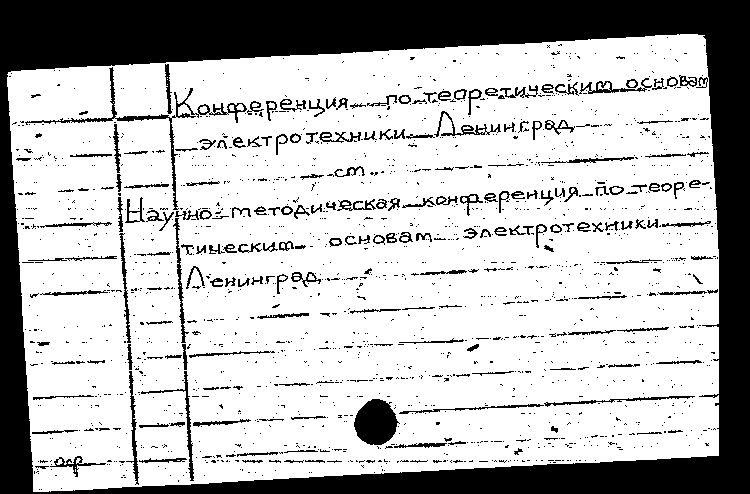 Конференция по теоретическим основам
электротехники Ленинград
ст.
Научно-методическая конференция по теоре-
тическим основам электротехники
Ленинград